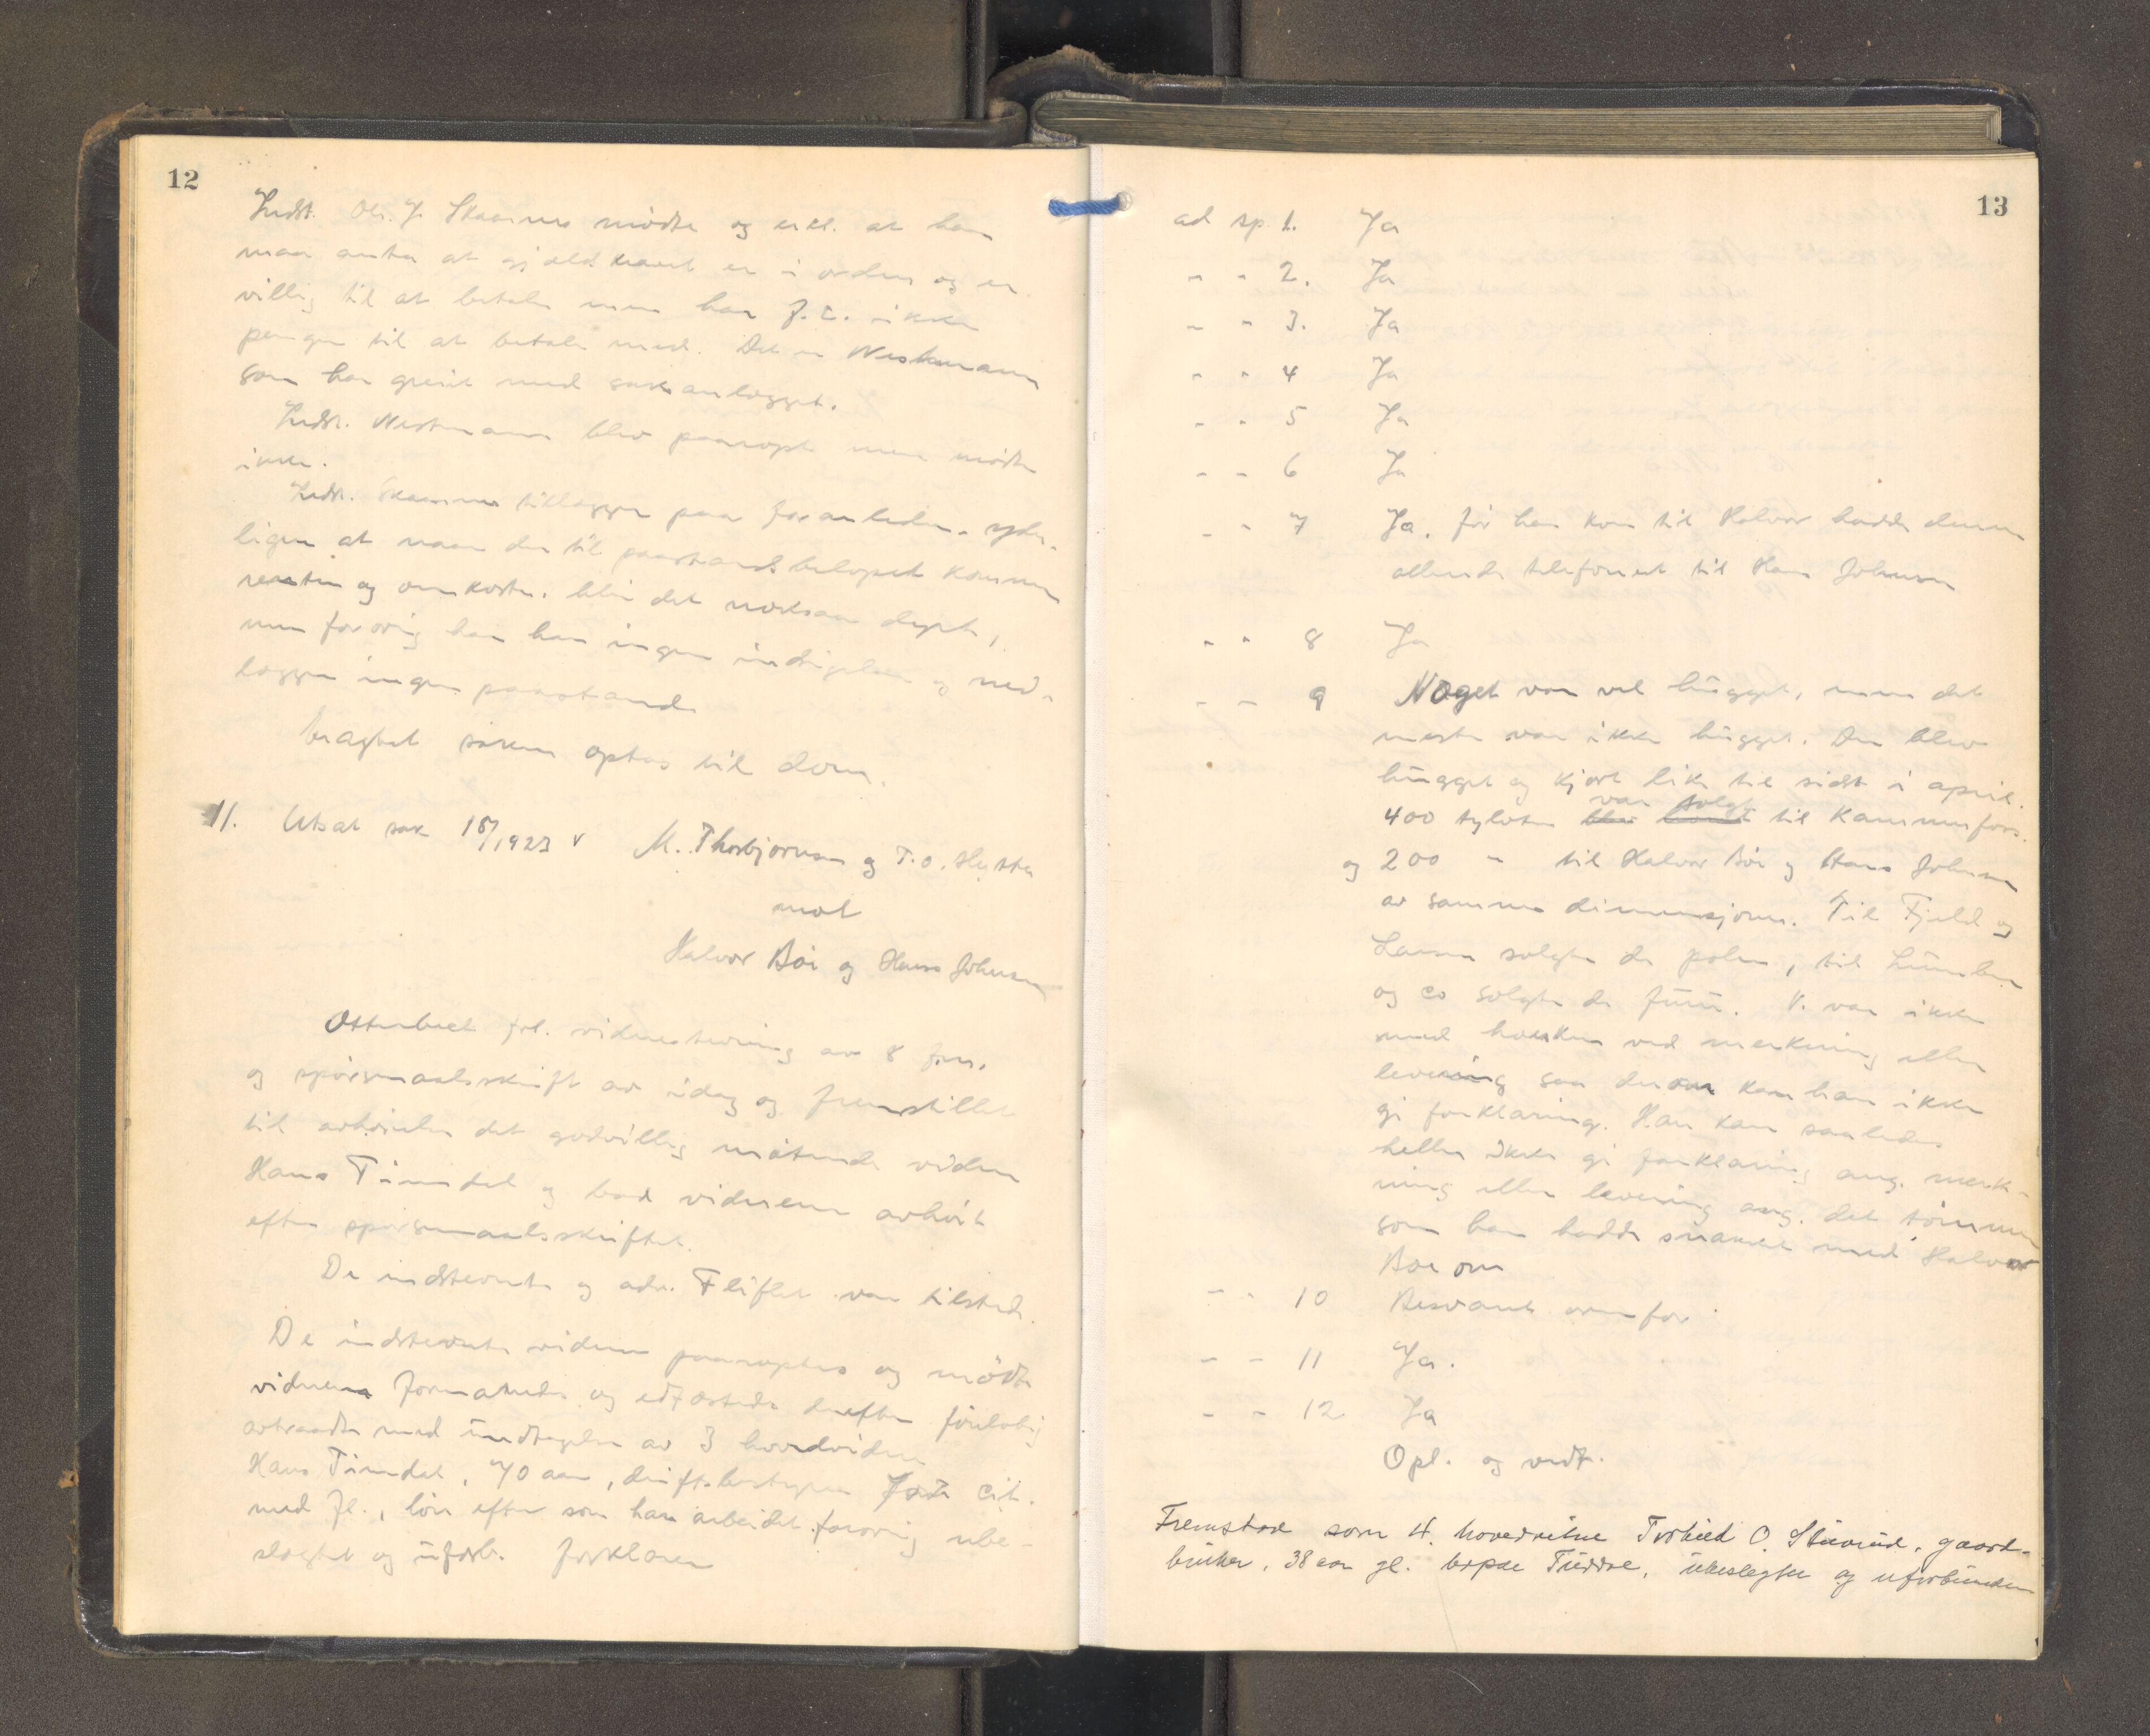 12
Indst. Ole J. Skaarnes mødte og erkl. at han
maa anta at gjældskravet er i orden og er
villig til at betale men har f.t. ikke
penger til at betale med. Det er Westmann
som har greiet med saksanlægget.
Indst. Westmann blev paaropt men mødte
ikke.
Indst. Skaarnes tillægger paa foranledn. yder-
ligere at naar der til paastandsbeløpet kommer
renter og omkostn. blir det noksaa dyrt,
men forøvrig har han ingen indsigelser og ned-
lægger ingen paastand.
Eragtet saken optas til dom.
11. Utsat sak 15/1923 v M. Thorbjørnsen og T.O.
mot
Halvor Bøe og Hans Johnsen
Otterbech frl. vidnestevning av 8 ds.
og spørsmaalsskrift av idag og fremstillet
til avhørelse det godvillig møtende vidne
Hans Timdal og bad vidnerne avhørt
efter spørsmaalsskriftet.
De indstevnte og adv. Fliflet var tilstede.
De indstevnte vidner paaroptes og mødte
vidnerne formanedes og edfæstedes derefter foreløbig
avtraadte med undtagelse av 3 hovedvidne
Hans Timdal, 70 aar, driftsbestyrer cit.
med fl., løn efter som han arbeidet forøvrig ube-
slegtet og uforb. forklarer
13
ad sp. 1. Ja
" " 2. Ja
" " 3. Ja
" " 4 Ja
" " 5 Ja
" " 6 Ja
" " 7 Ja. før han kom til Halvor hadde denne
allerede telefonert til Hans Johnsen
" " 8 Ja
" " 9 Noget var vel hugget, men det
meste var ikke hugget. Den blev
hugget og kjørt like til sidst i april.
400 tylvter blev var solgt til Kammerfoss.
og 200 " til Halvor Bøe og Hans Johnsen
av samme dimensjoner. Til Fjeld og
Larsen solgte de poler, til
og co solgte de furu. V. var ikke
med hverken ved merkning eller
levering saa derom kan han ikke
gi forklaring. Han kan saaledes
heller ikke gi forklaring ang. merk-
ning eller levering ang. det tømmer
som han hadde snakket med Halvor
Bøe om
" " 10 Besvart ovenfor
" " 11 Ja.
" " 12 Ja
Opl. og vedt.
Fremstod som 4. hovedvitne O. gaard-
bruker, 38 aar gl. bopæl Tuddal, ubeslegtet og uforbunden